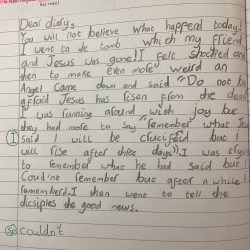 Dear diary,
You will not believe what happend today!
I went to the tomb which my friend
and Jesus was gone! I felt shocked and
then to make even more weird an
Angel came down and said "Do not be
affraid Jesus has risen from the dead
I was running around with joy but
they had more to say "remember what Jesus
said I will be crucifed but I
will rise after three days". I was trying
to remember what he had said but I
Could'nt remember but after a while I
rememberd. I then went to tell the
disiples the good news.
Sp couldn't